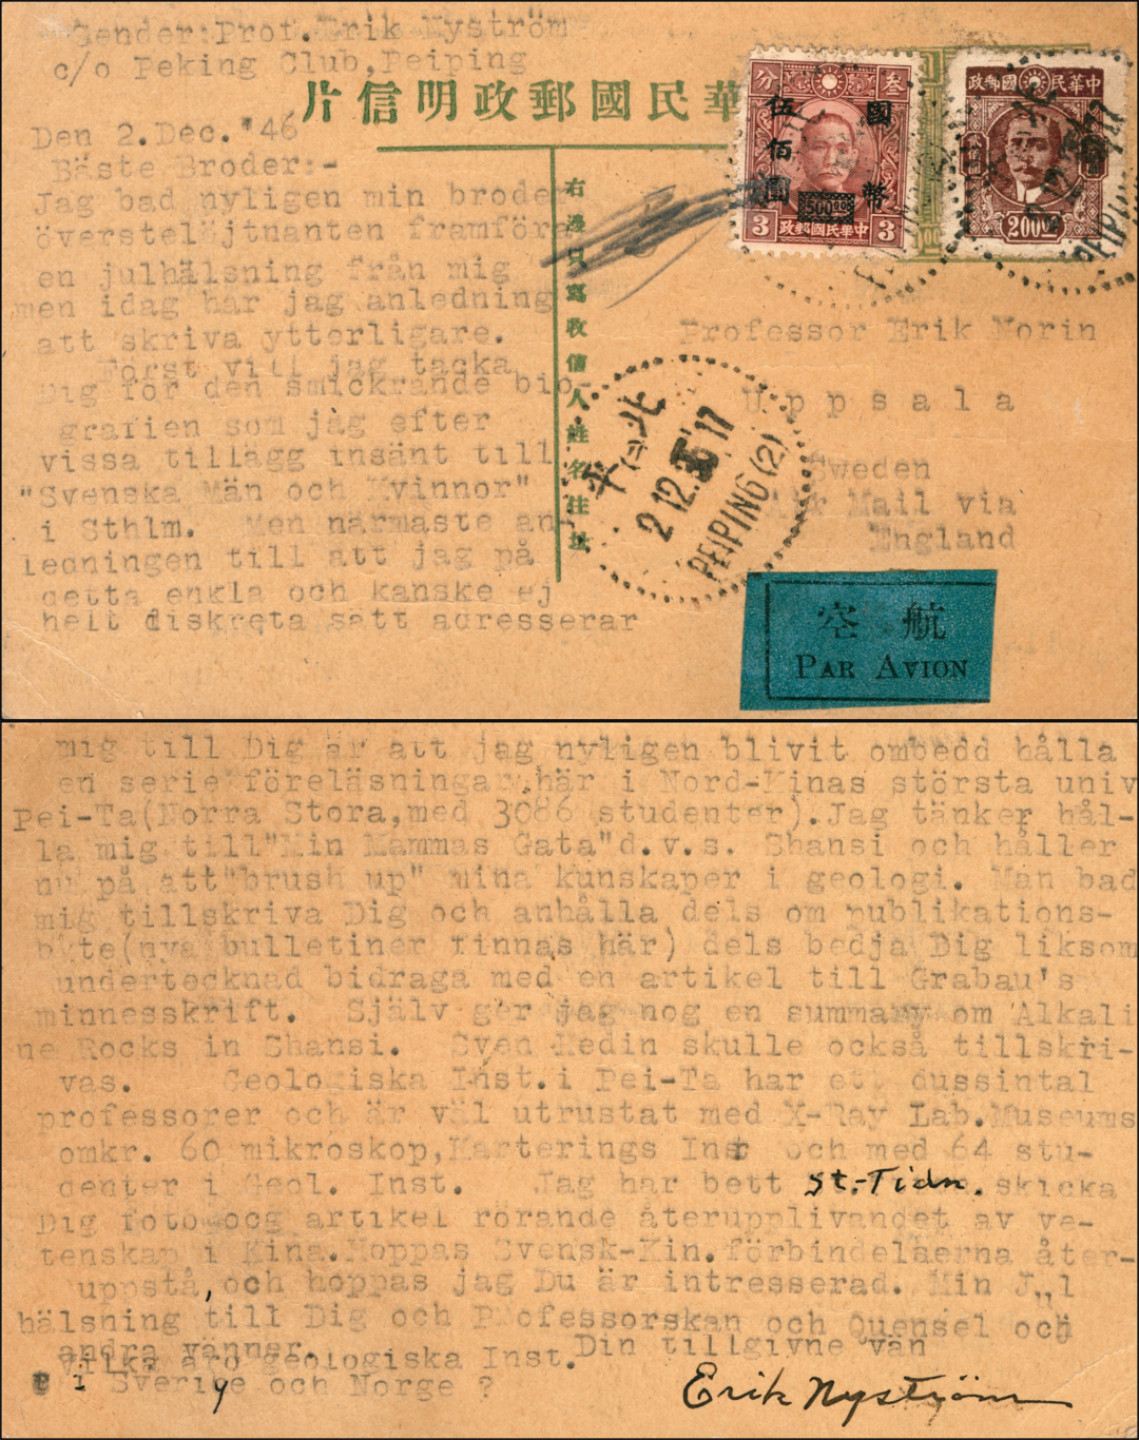 Sender:Prof.Erik Nyström
c/o Peking Club,Peiping
片信明政郵國民華
Den 2.Dec. '46
Bäste Broder:-
Jag bad nyligen min broder
överstelöjtnanten framföra
en julhälsning från mig
men idag har jag anledning
att skriva ytterligare.
Först vill jag tacka
Dig för den smickrande bio-
grafien som jag efter
vissa tillägg insänt till
"Svenska Män och Kvinnor"
i Sthlm. Men närmaste an-
ledningen till att jag på
detta enkla och kanske ej
helt diskreta sätt adresserar
右邊只寫收信人姓名住址
分 叁
伍佰圓
國幣
500.00
3 政郵國民華中 3
政郵國民華中
200.00
平北
2.12.35 17
PEIPING (2)
Professor Erik Norin
Uppsala
Sweden
Air Mail via
England
空 航
PAR AVION
mig till Dig är att jag nyligen blivit ombedd hålla
en serie föreläsningar här i Nord-Kinas största univ
Pei-Ta(Norra Stora,med 3086 studenter).Jag tänker hål-
la mig till"Min Mammas Gata"d.v.s. Shansi och håller
nu på att"brush up" mina kunskaper i geologi. Man bad
mig tillskriva Dig och anhålla dels om publikations-
byte(nya bulletiner finnas här) dels bedja Dig liksom
undertecknad bidraga med en artikel till Grabau's
minnesskrift. Själv ger jag nog en summary om Alkali
ne Rocks in Shansi. Sven Hedin skulle också tillskri-
vas. Geologiska Inst.i Pei-Ta har ett dussintal
professorer och är väl utrustat med X-Ray Lab.Museums
omkr. 60 mikroskop,Karterings Inst och med 64 stu-
denter i Geol. Inst. Jag har bett St.-Tidn. skicka
Dig foto ocg artikel rörande återupplivandet av ve-
tenskap i Kina.Hoppas Svensk-Kin.förbindelserna åter-
uppstå,och hoppas jag Du är intresserad. Min Jul
hälsning till Dig och Professorskan och Quensel och
andra vänner. Din tillgivne vän
Vilka äro geologiska Inst.
i Sverige och Norge ?
Erik Nyström